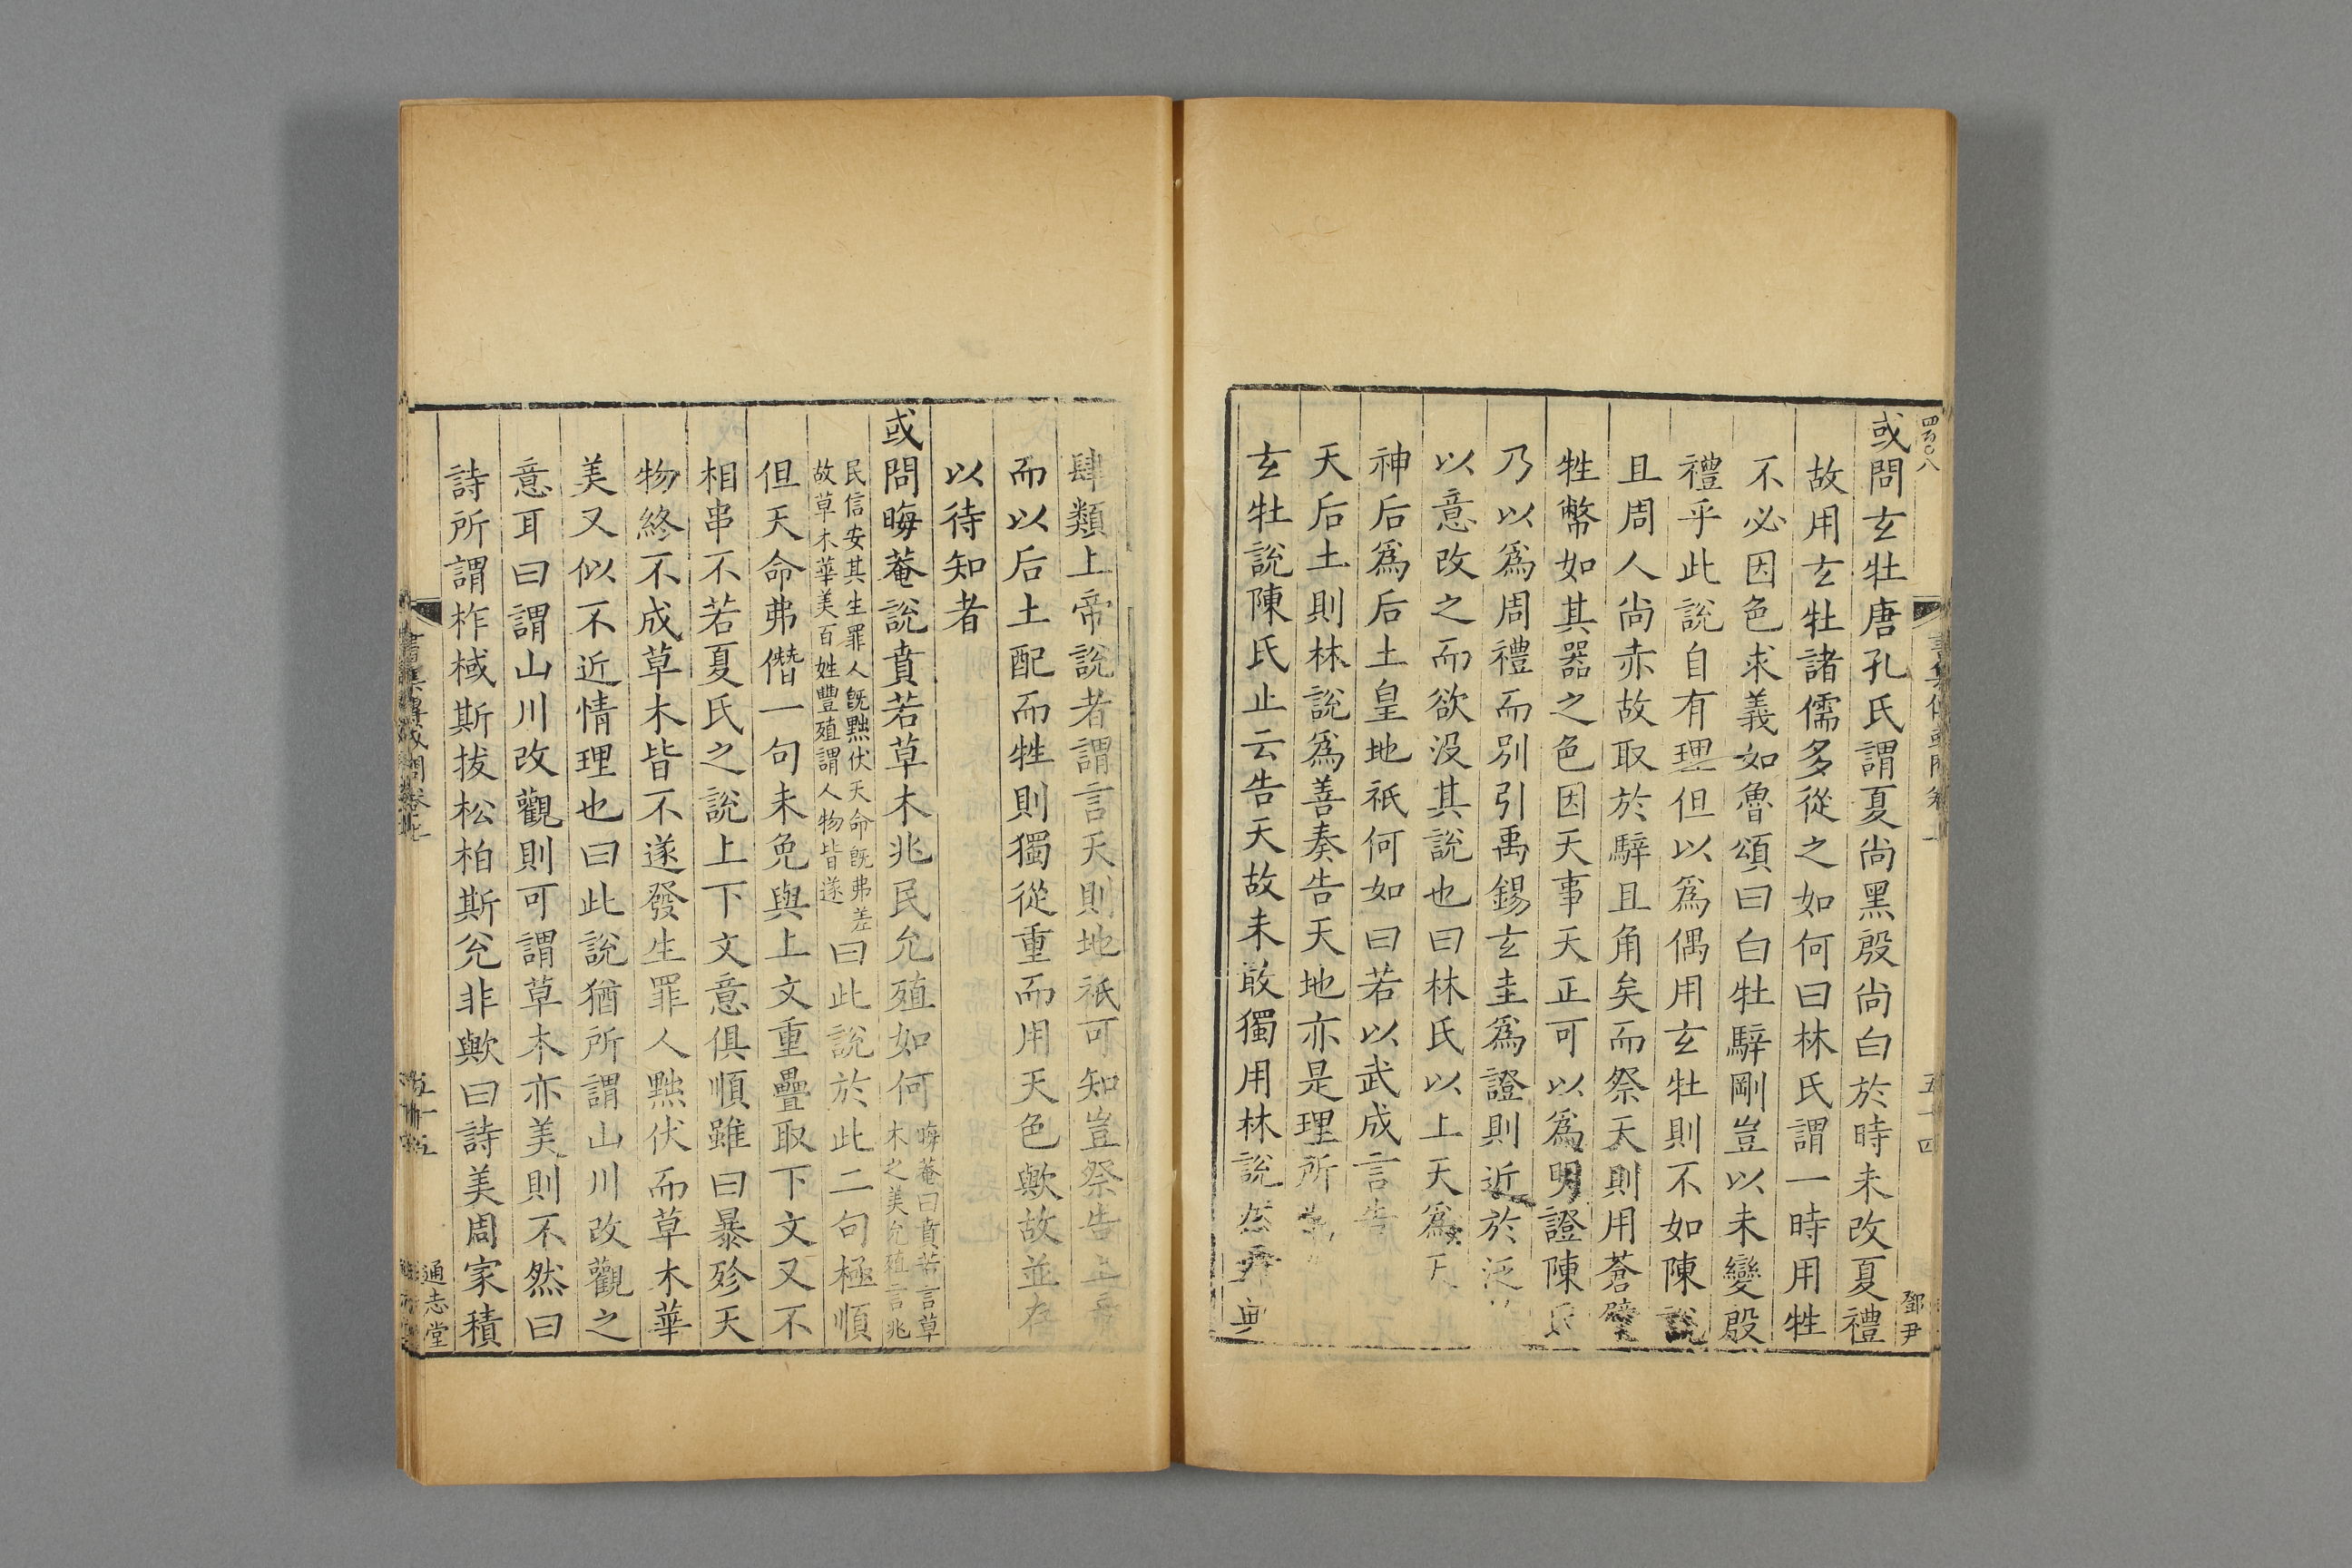 四百八
五十四
鄧尹
或問玄牡唐孔氏謂夏尚黑殷尚白於時未改夏禮
故用玄牡諸儒多從之如何曰林氏謂一時用牲
不必因色求義如魯頌曰白牡騂剛豈以未變殷
禮乎此說自有理但以爲偶用玄牡則不如陳說
且周人尚赤故取於騂且角矣而祭天則用蒼璧
牲幣如其器之色因天事天正可以爲明證陳氏
乃以爲周禮而別引禹錫玄圭爲證則近於泛
以意改之而欲沒其說也曰林氏以上天爲天
神后爲后土皇地祇何如曰若以武成言告
天后土則林說爲善奏告天地亦是理所
玄牡說陳氏止云告天故未敢獨用林說然
肆類上帝說者謂言天則地祇可知豈祭告上帝
而以后土配而牲則獨從重而用天色歟故並存
以待知者
或問晦菴說賁若草木兆民允殖如何晦菴曰賁若言草木之美允殖言兆
民信安其生罪人旣黜伏天命旣弗差故草木華美百姓豐殖謂人物皆遂曰此說於此二句極順
但天命弗僭一句未免與上文重疊取下文又不
相串不若夏氏之說上下文意俱順雖曰暴殄天
物終不成草木皆不遂發生罪人黜伏而草木華
美又似不近情理也曰此說猶所謂山川改觀之
意耳曰謂山川改觀則可謂草木亦美則不然曰
詩所謂柞棫斯拔松柏斯兊非歟曰詩美周家積
通志堂